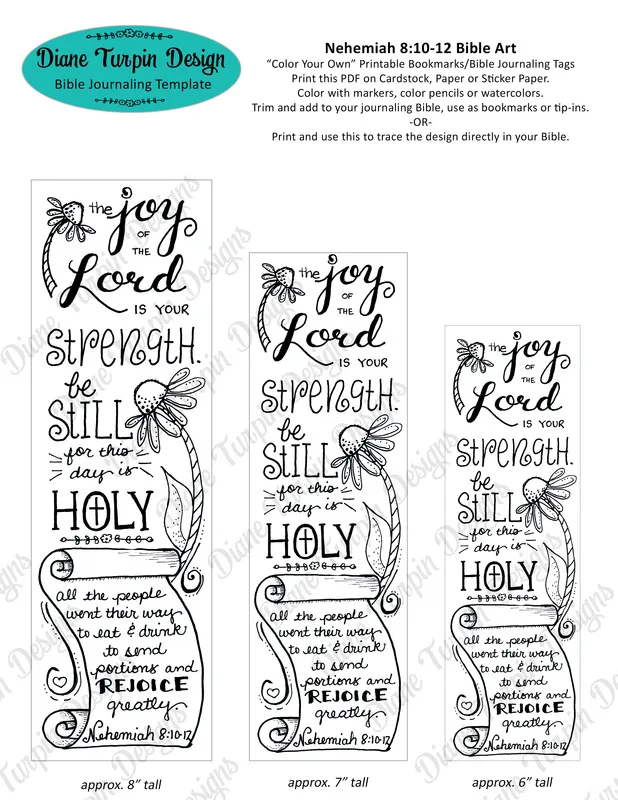 Diane Turpin Design
Bible Journaling Template
Nehemiah 8:10-12 Bible Art
“Color Your Own” Printable Bookmarks/Bible Journaling Tags
Print this PDF on Cardstock, Paper or Sticker Paper.
Color with markers, color pencils or watercolors.
Trim and add to your journaling Bible, use as bookmarks or tip-ins.
-OR-
Print and use this to trace the design directly in your Bible.
the joy
OF
THE
Lord
IS YOUR
STRENGTH.
be
STILL
for this
day is
HOLY
all the people
went their way
to eat & drink
to send
portions and
REJOICE
greatly.
Nehemiah 8:10-12
approx. 8” tall
the joy
OF
THE
Lord
IS YOUR
STRENGTH.
be
STILL
for this
day is
HOLY
all the people
went their way
to eat & drink
to send
portions and
REJOICE
greatly.
Nehemiah 8:10-12
approx. 7” tall
the joy
OF
THE
Lord
IS YOUR
STRENGTH.
be
STILL
for this
day is
HOLY
all the people
went their way
to eat & drink
to send
portions and
REJOICE
greatly.
Nehemiah 8:10-12
approx. 6” tall
Diane Turpin Designs
Diane Turpin Designs
Diane Turpin Designs